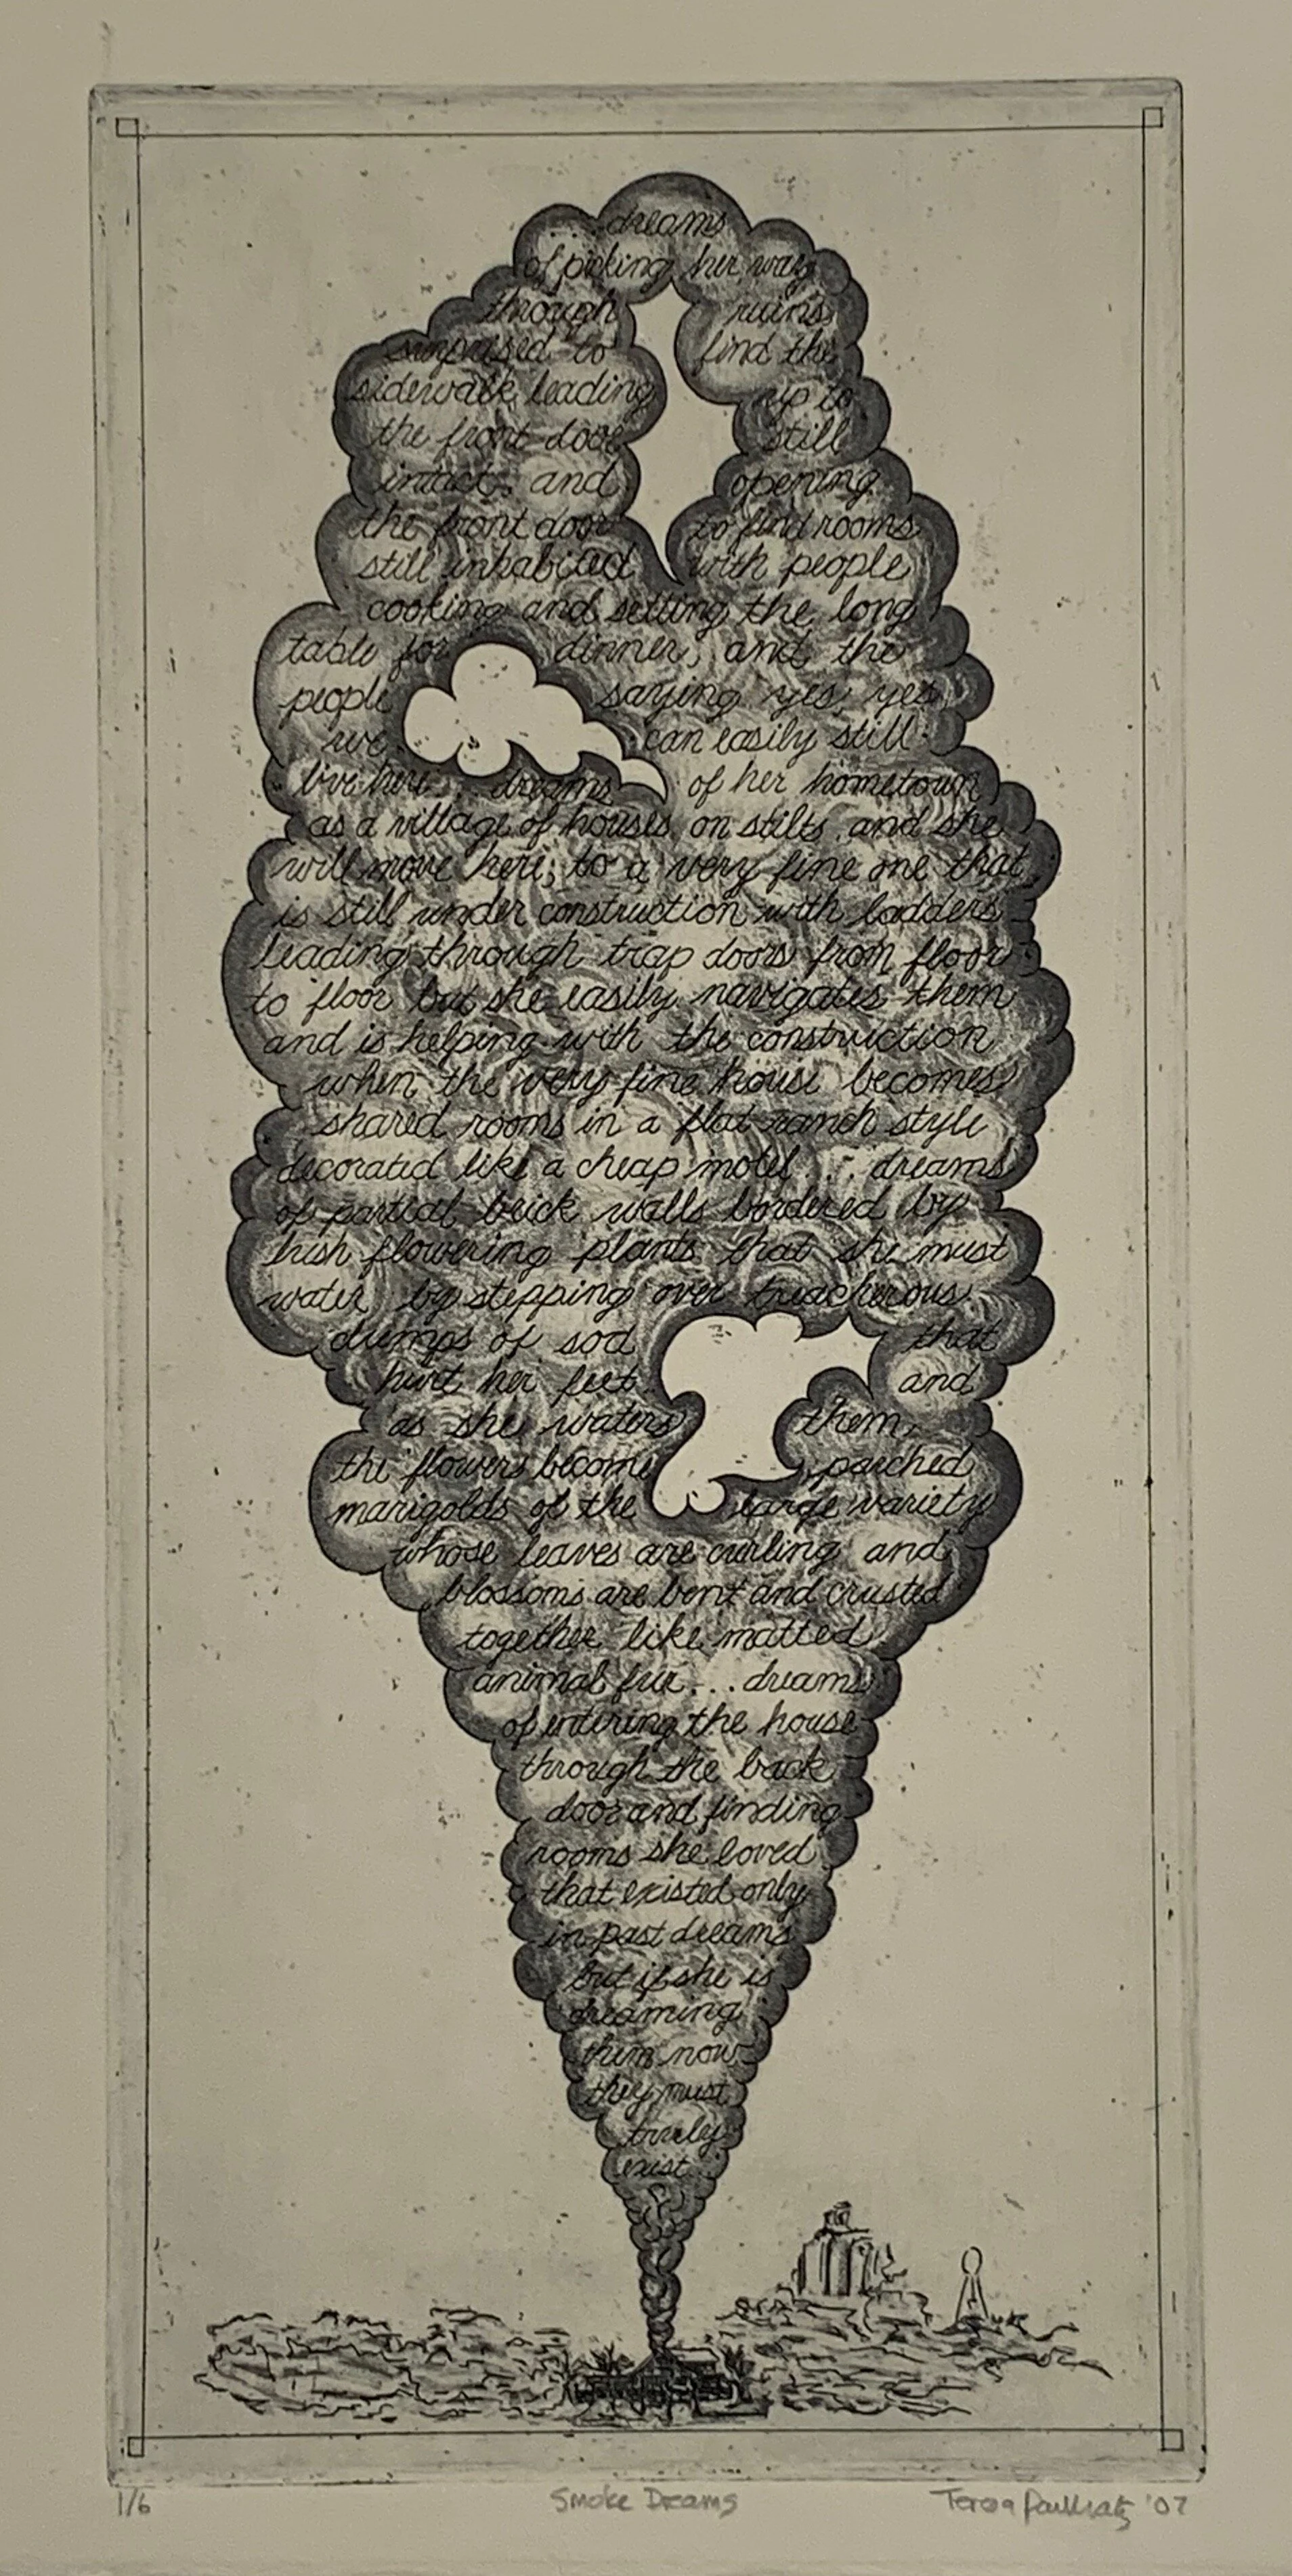 dreams
of picking her way
through ruins
surprised to find the
sidewalk leading up to
the front door still
intact, and opening
the front door to find rooms
still inhabited with people
cooking and setting the long
table for dinner, and the
people saying yes, yes
we can easily still
live here... dreams of her hometown
as a village of houses on stilts and she
will move here; to a very fine one that
is still under construction with ladders
leading through trap doors from floor
to floor but she easily navigates them
and is helping with the construction
when the very fine house becomes
shared rooms in a flat ranch style
decorated like a cheap motel ... dreams
of partial brick walls bordered by
lush flowering plants that she must
water by stepping over treacherous
clumps of sod that
hurt her feet and
as she waters them,
the flowers become parched
marigolds of the large variety
whose leaves are curling and
blossoms are bent and crusted
together like matted
animal fur... dreams
of entering the house
through the back
door and finding
rooms she loved
that existed only
in past dreams
but if she is
dreaming
them now
they must
truly
exist
1/6 Smoke Dreams Teresa '07